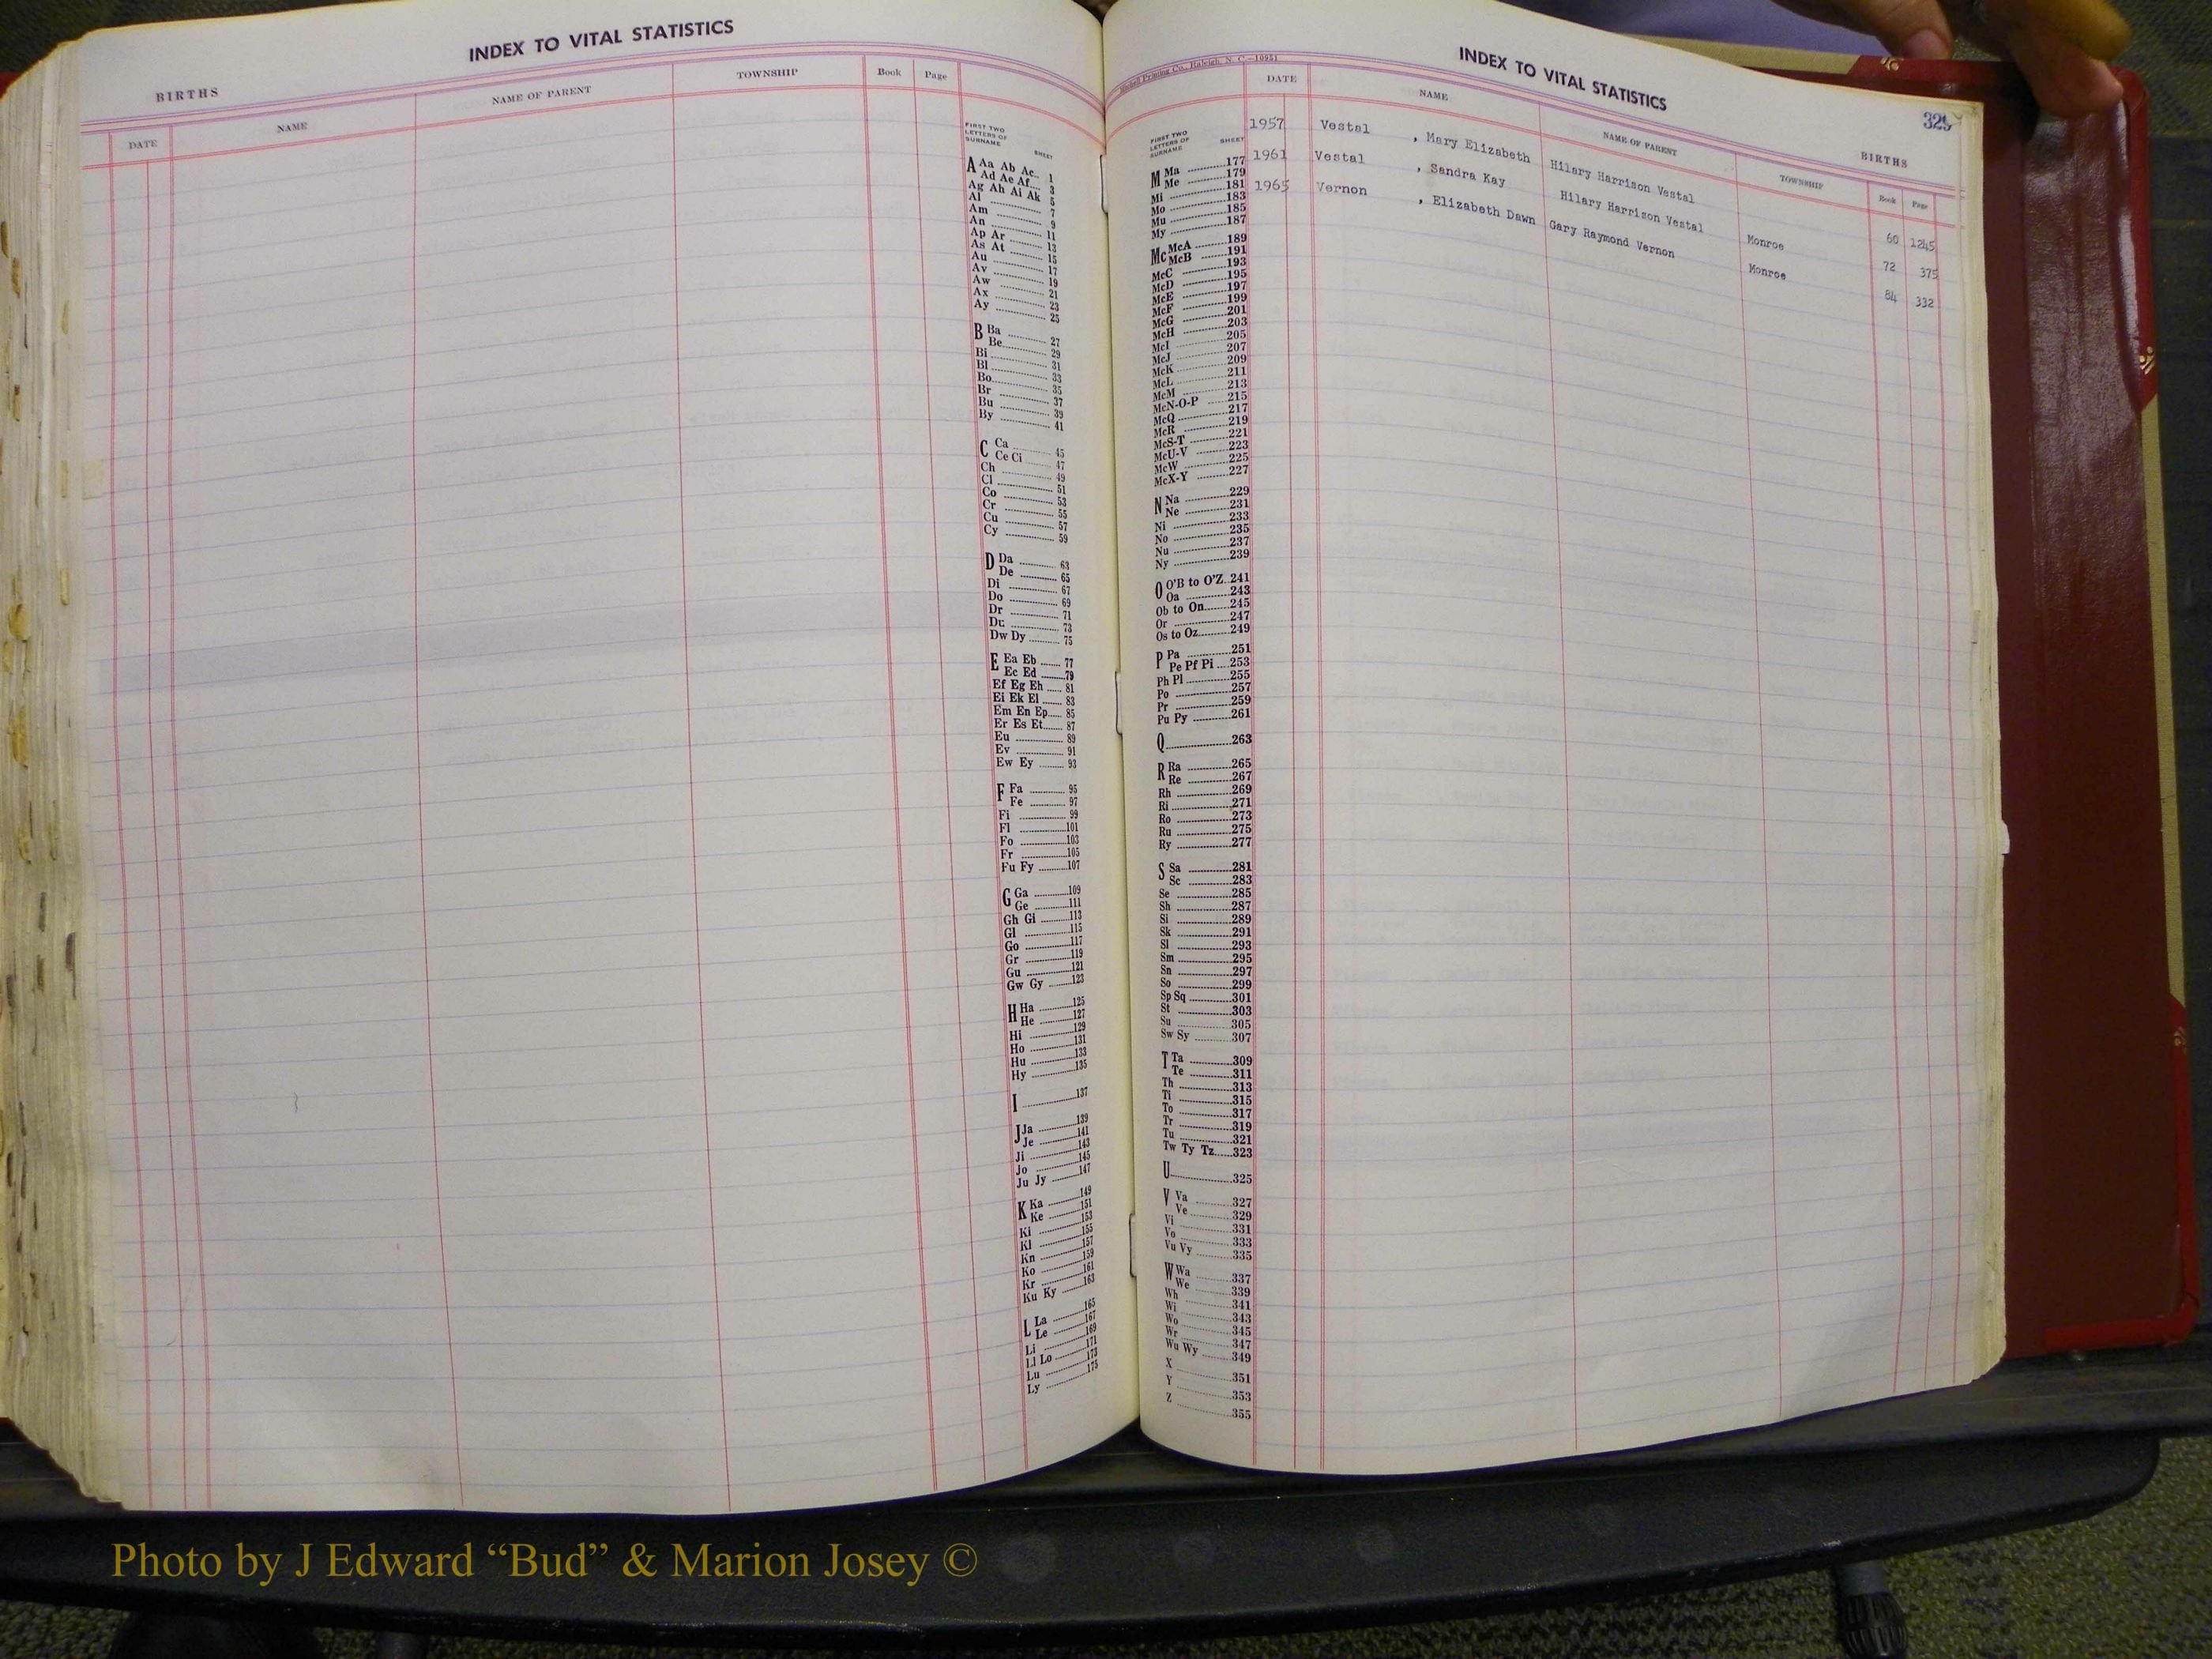 INDEX TO VITAL STATISTICS
BIRTHS
DATE NAME NAME OF PARENT TOWNSHIP Book Page
FIRST TWO
LETTERS OF
SURNAME SHEET
A Aa Ab Ac 1
Ad Ae Af 3
Ag Ah Ai Ak 5
Al 7
Am 9
An 11
Ap Ar 13
As At 15
Au 17
Av 19
Aw 21
Ax 23
Ay 25
B Ba 27
Be 29
Bi 31
Bl 33
Bo 35
Br 37
Bu 39
By 41
C Ca 45
Ce Ci 47
Ch 49
Cl 51
Co 53
Cr 55
Cu 57
Cy 59
D Da 63
De 65
Di 67
Do 69
Dr 71
Du 73
Dw Dy 75
E Ea Eb 77
Ec Ed 79
Ef Eg Eh 81
Ei Ek El 83
Em En Ep 85
Er Es Et 87
Eu 89
Ev 91
Ew Ey 93
F Fa 95
Fe 97
Fi 99
Fl 101
Fo 103
Fr 105
Fu Fy 107
G Ga 109
Ge 111
Gh Gi 113
Gl 115
Go 117
Gr 119
Gu 121
Gw Gy 123
H Ha 125
He 127
Hi 129
Ho 131
Hu 133
Hy 135
I 137
J Ja 139
Je 141
Ji 143
Jo 145
Ju Jy 147
K Ka 149
Ke 151
Ki 153
Kl 155
Kn 157
Ko 159
Kr 161
Ku Ky 163
L La 165
Le 167
Li 169
Ll Lo 171
Lu 173
Ly 175
Printing Co., Raleigh, N. C.—10951
INDEX TO VITAL STATISTICS
329
BIRTHS
DATE NAME NAME OF PARENT TOWNSHIP Book Page
1957 Vestal , Mary Elizabeth Hilary Harrison Vestal Monroe 60 1245
1961 Vestal , Sandra Kay Hilary Harrison Vestal Monroe 72 375
1965 Vernon , Elizabeth Dawn Gary Raymond Vernon 84 332
FIRST TWO
LETTERS OF
SURNAME SHEET
M Ma 177
Me 179
Mi 181
Mo 183
Mu 185
My 187
Mc McA 189
McB 191
McC 193
McD 195
McE 197
McF 199
McG 201
McH 203
McI 205
McJ 207
McK 209
McL 211
McM 213
McN-O-P 215
McQ 217
McR 219
McS-T 221
McU-V 223
McW 225
McX-Y 227
N Na 229
Ne 231
Ni 233
No 235
Nu 237
Ny 239
O O'B to O'Z 241
Oa 243
Ob to On 245
Or 247
Os to Oz 249
P Pa 251
Pe Pf Pi 253
Ph Pl 255
Po 257
Pr 259
Pu Py 261
Q 263
R Ra 265
Re 267
Rh 269
Ri 271
Ro 273
Ru 275
Ry 277
S Sa 281
Sc 283
Se 285
Sh 287
Si 289
Sk 291
Sl 293
Sm 295
Sn 297
So 299
Sp Sq 301
St 303
Su 305
Sw Sy 307
T Ta 309
Te 311
Th 313
Ti 315
To 317
Tr 319
Tu 321
Tw Ty Tz 323
U 325
V Va 327
Ve 329
Vi 331
Vo 333
Vu Vy 335
W Wa 337
We 339
Wh 341
Wi 343
Wo 345
Wr 347
Wu Wy 349
X 351
Y 353
Z 355
Photo by J Edward “Bud” & Marion Josey ©